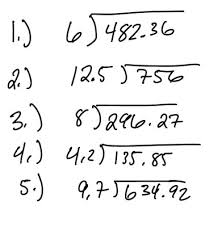 1.) 6)482.36
2.) 12.5)756
3.) 8)296.27
4.) 4,2)135,85
5.) 9,7)634.92